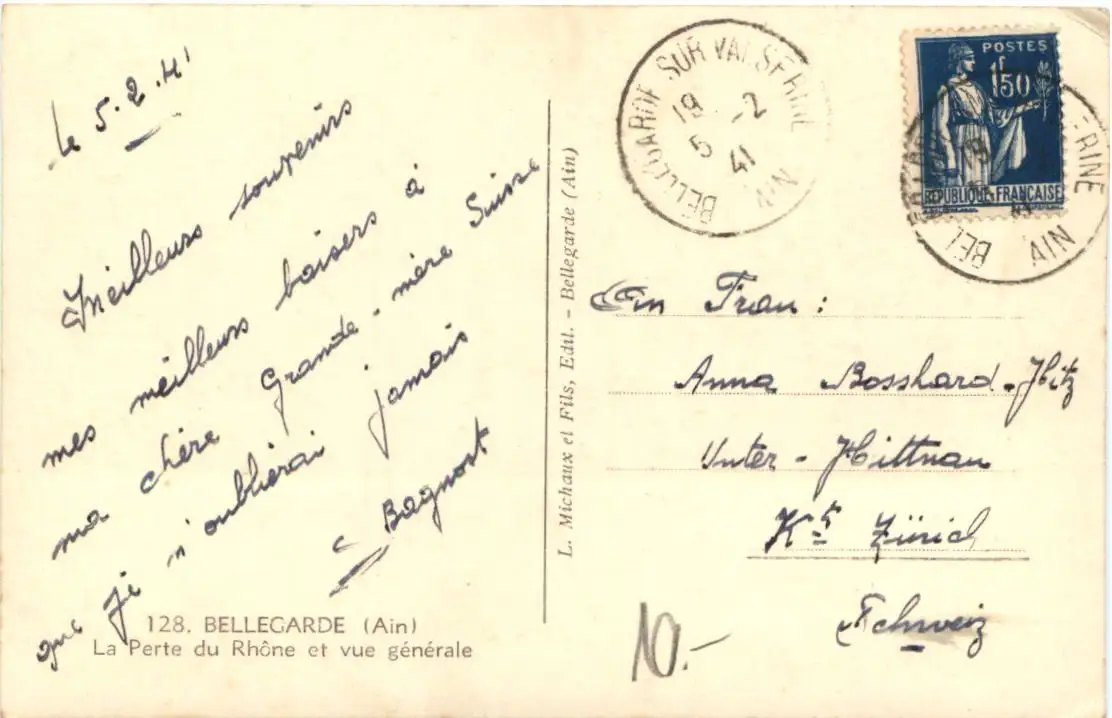 le 5.2.41
Meilleurs souvenirs
mes meilleurs baisers à
ma chère Grande-mère Suisse
que je n'oublierai jamais
128. BELLEGARDE (Ain)
La Perte du Rhône et vue générale
L. Michaux et Fils, Edit. - Bellegarde (Ain)
BELLEGARDE SUR VALSERINE
19 -2
5 41
AIN
POSTES
1F50
RÉPUBLIQUE FRANÇAISE
An Frau:
Anna Bosshard-Hitz
Unter-Hittnau
Kt Zürich
Schweiz
10.-